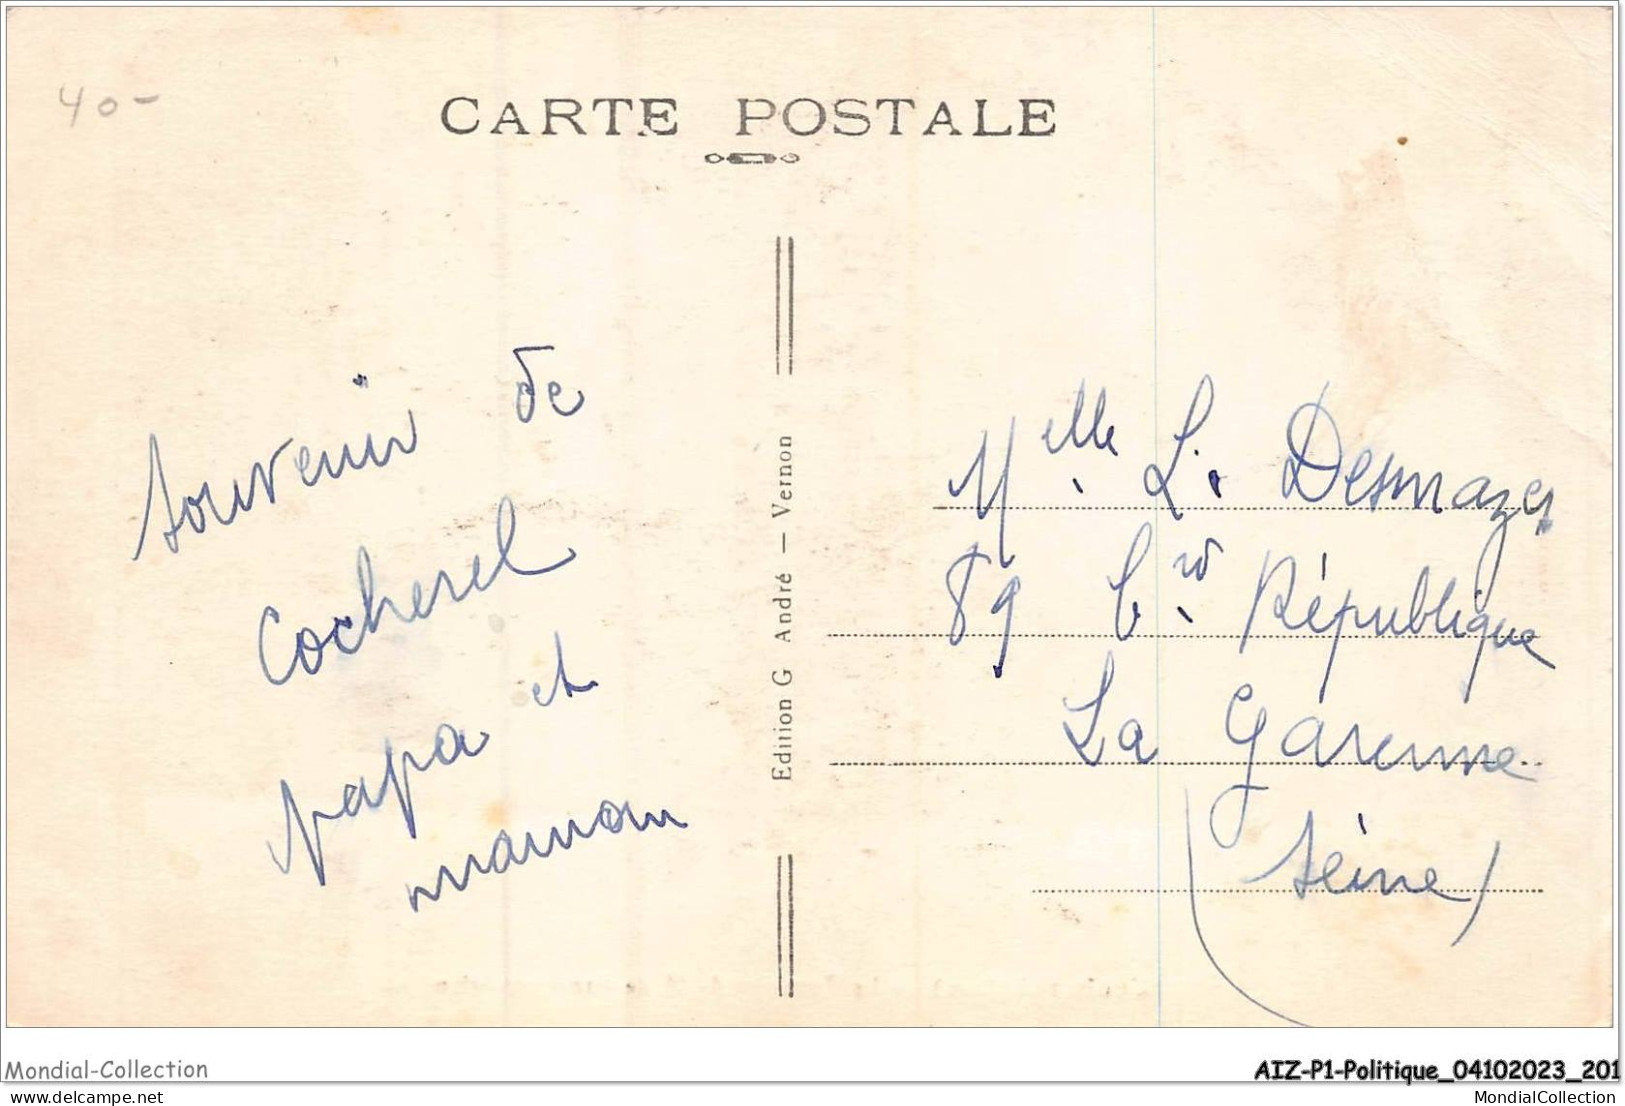 40-
CARTE POSTALE
souvenir de
Cocherel
papa et
maman
Edition G André — Vernon
Melle L. Desmazes
89 Bd République
La Garenne
(Seine)
Mondial-Collection
AIZ-P1-Politique_04102023_201
www.delcampe.net
MondialCollection